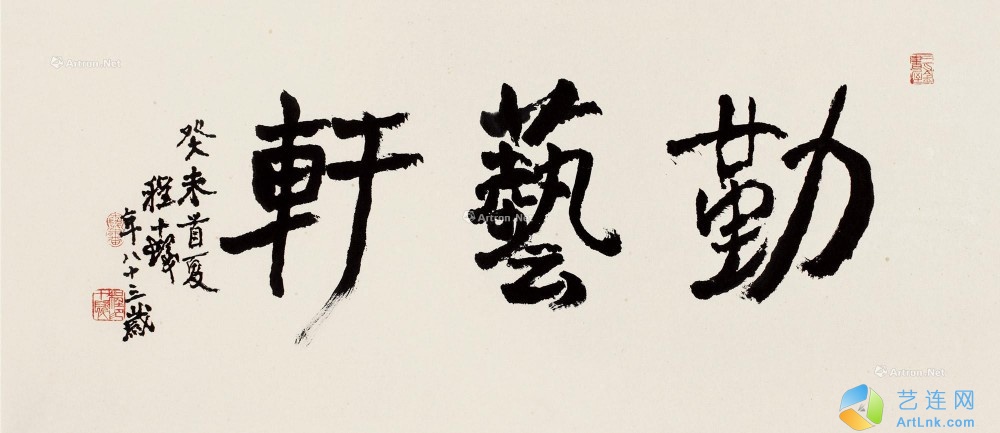 勤藝軒
癸未首夏
程十髮
年八十三歲
Artron.Net
Artron.Net
Artron.Net
艺连网
ArtLnk.com